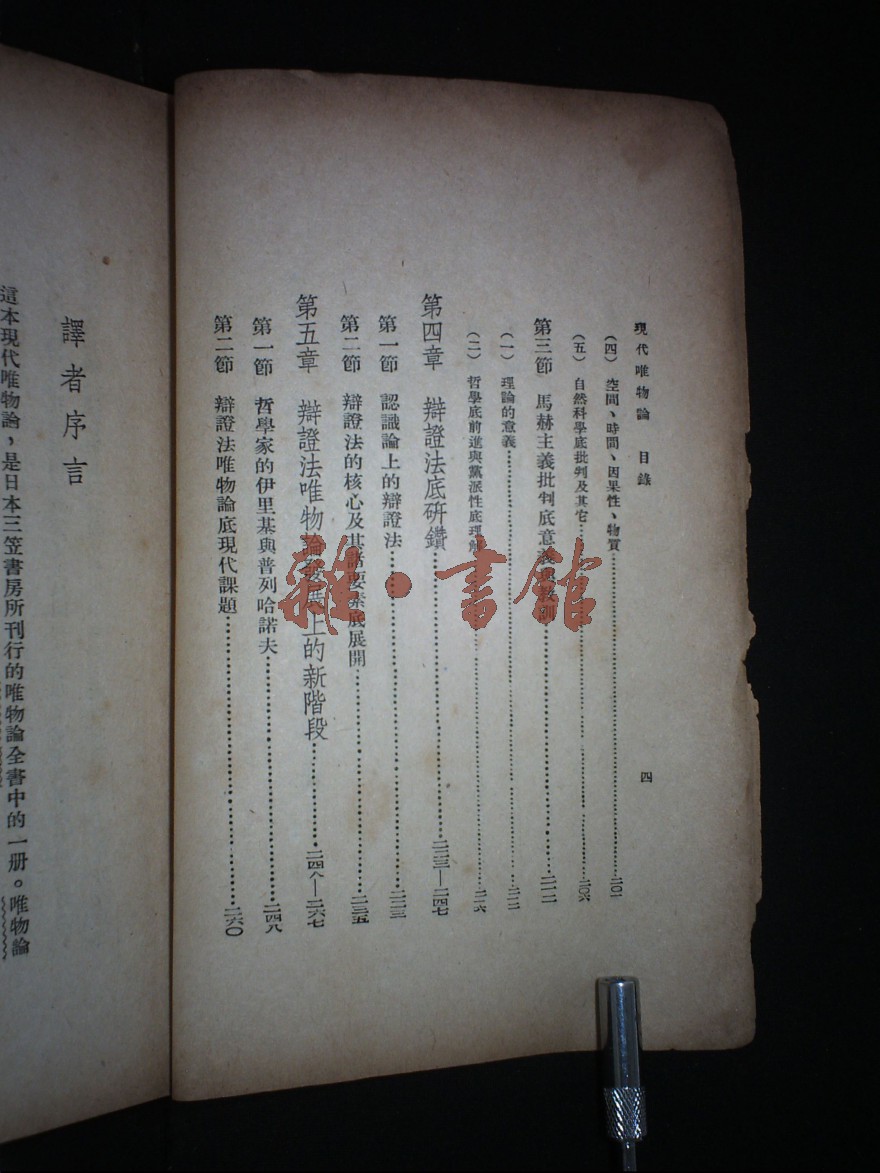 現代唯物論 目錄
四
(四) 空間、時間、因果性、物質……二〇一
(五) 自然科學底批判及其它……二〇六
第三節 馬赫主義批判底意義與教訓……二一二
(一) 理論的意義……二一二
(二) 哲學底前進與黨派性底理解……二一六
第四章 辯證法底研鑽……二二三—二四七
第一節 認識論上的辯證法……二二三
第二節 辯證法的核心及其諸要素底展開……二三五
第五章 辯證法唯物論發展上的新階段……二四八—二六七
第一節 哲學家的伊里基與普列哈諾夫……二四八
第二節 辯證法唯物論底現代課題……二六〇
譯者序言
這本現代唯物論,是日本三笠書房所刊行的唯物論全書中的一册。唯物論
雜·書館